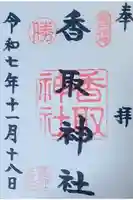 奉拝
香取神社
令和七年十一月十八日
勝
香取神社